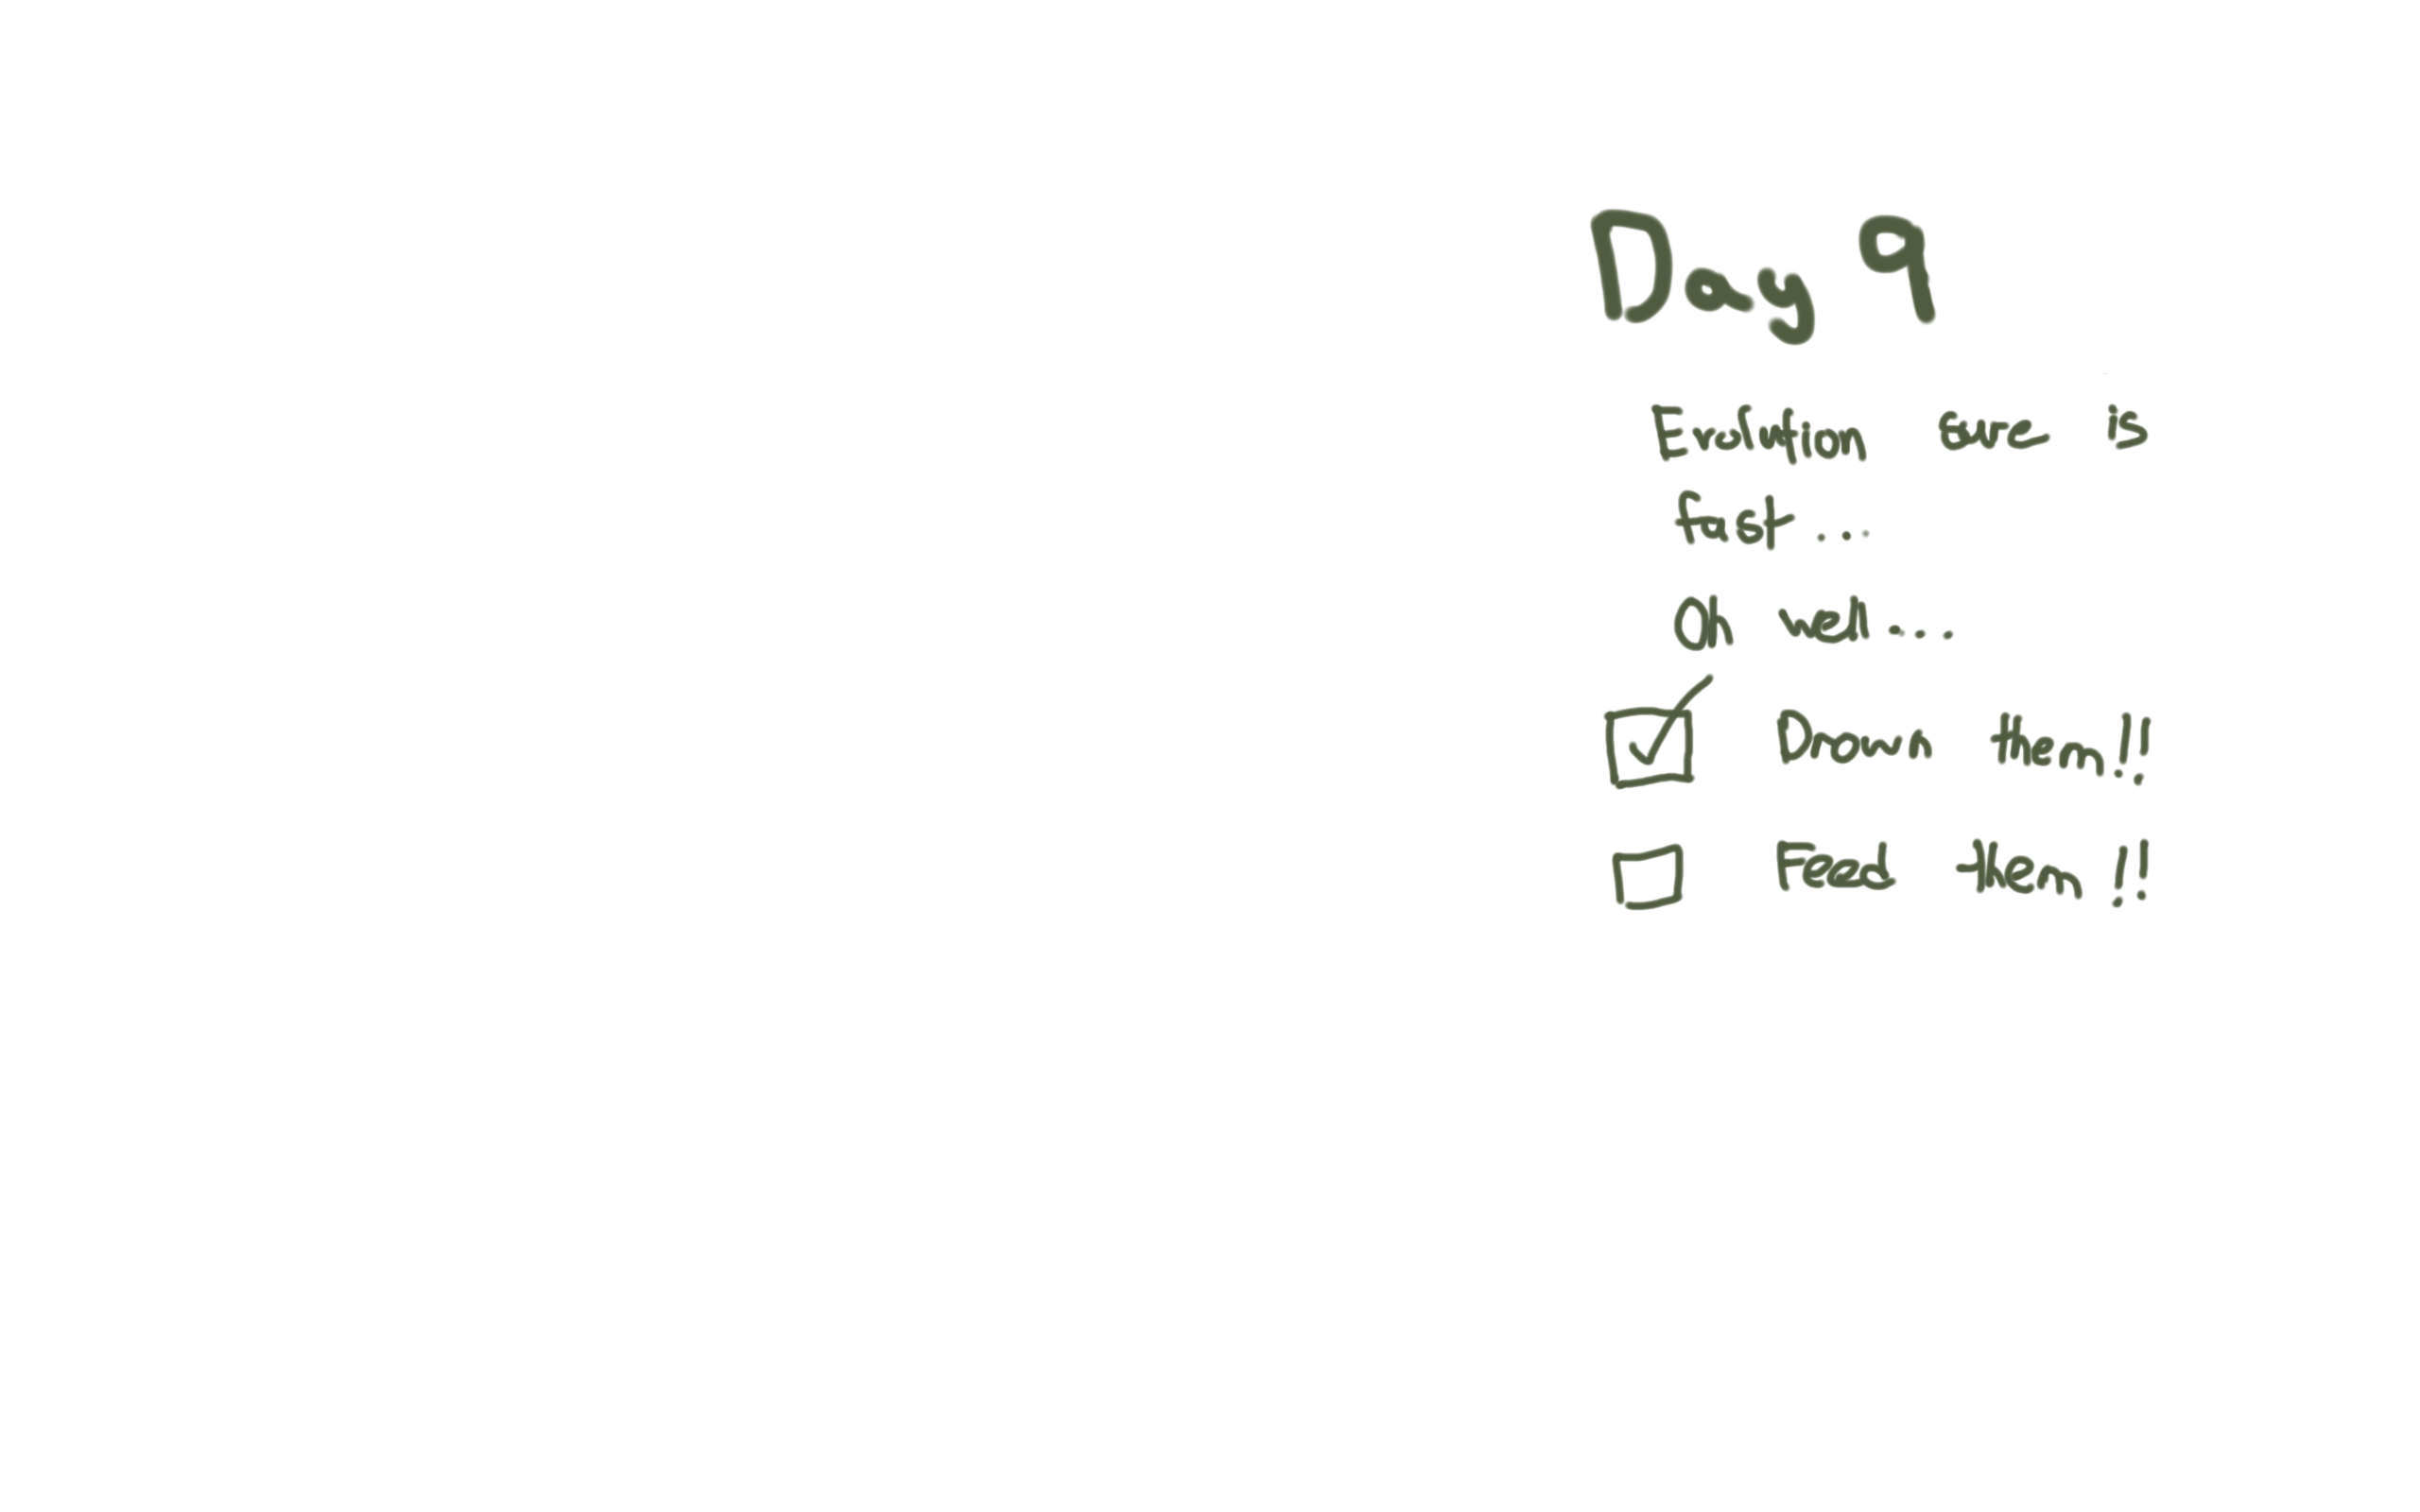 Day 9
Evolution sure is
fast...
Oh well....
Drown them!!
Feed them!!